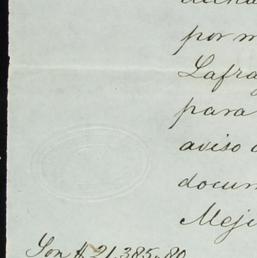 por m
Lafra
para
aviso
docum
Meji
Son $ 21,385,,80